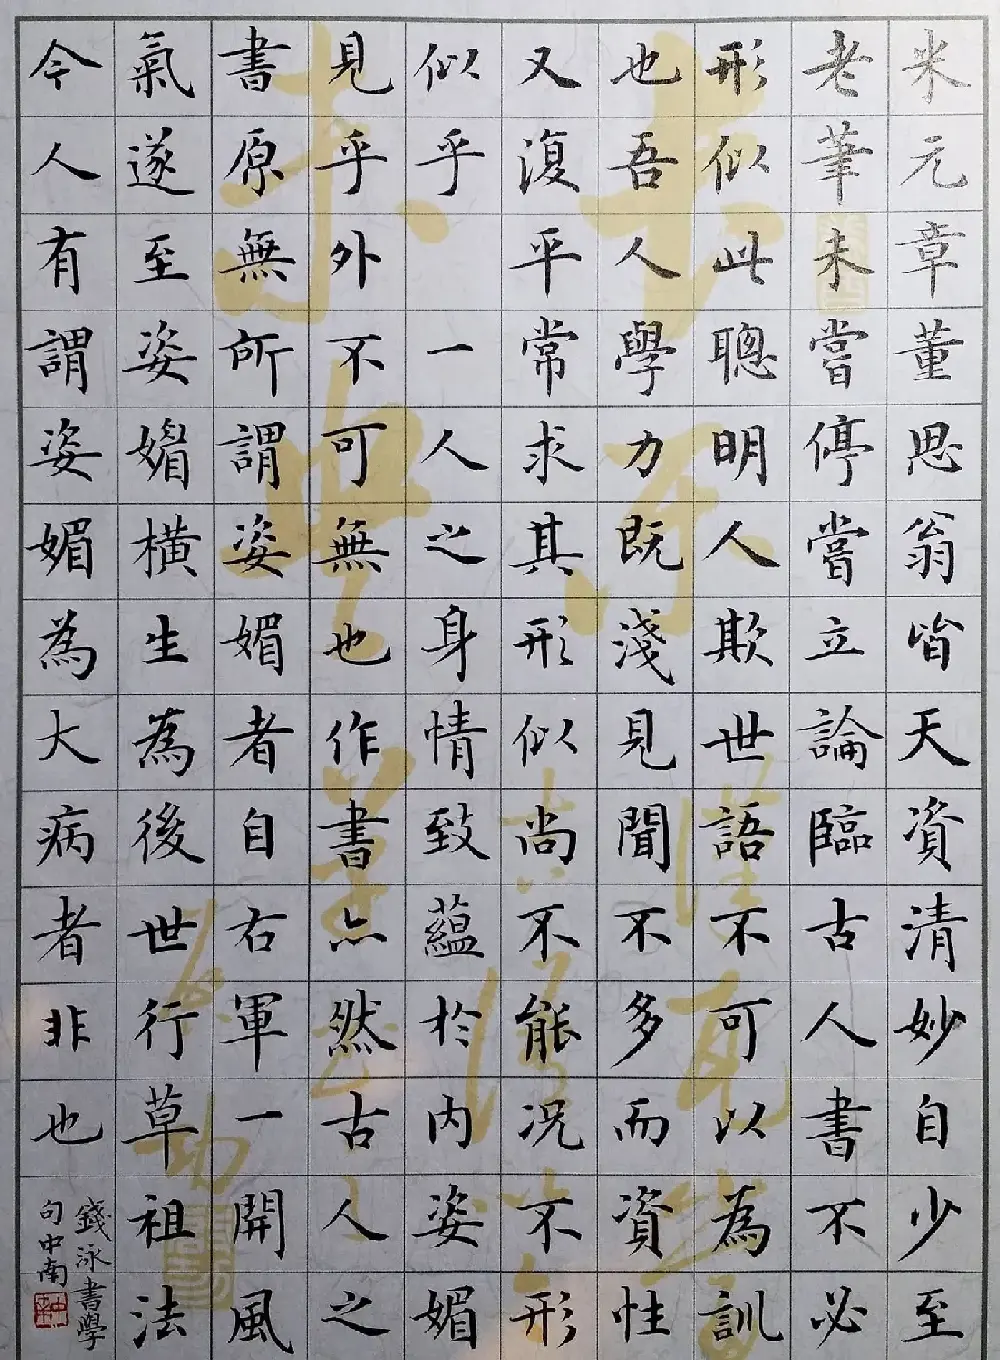 米元章董思翁皆天資清妙自少至
老筆未嘗停嘗立論臨古人書不必
形似此聰明人欺世語不可以為訓
也吾人學力既淺見聞不多而資性
又復平常求其形似尚不能況不形
似乎一人之身情致蘊於內姿媚
見乎外不可無也作書亦然古人之
書原無所謂姿媚者自右軍一開風
氣遂至姿媚橫生為後世行草祖法
今人有謂姿媚為大病者非也
錢泳書學
句中南